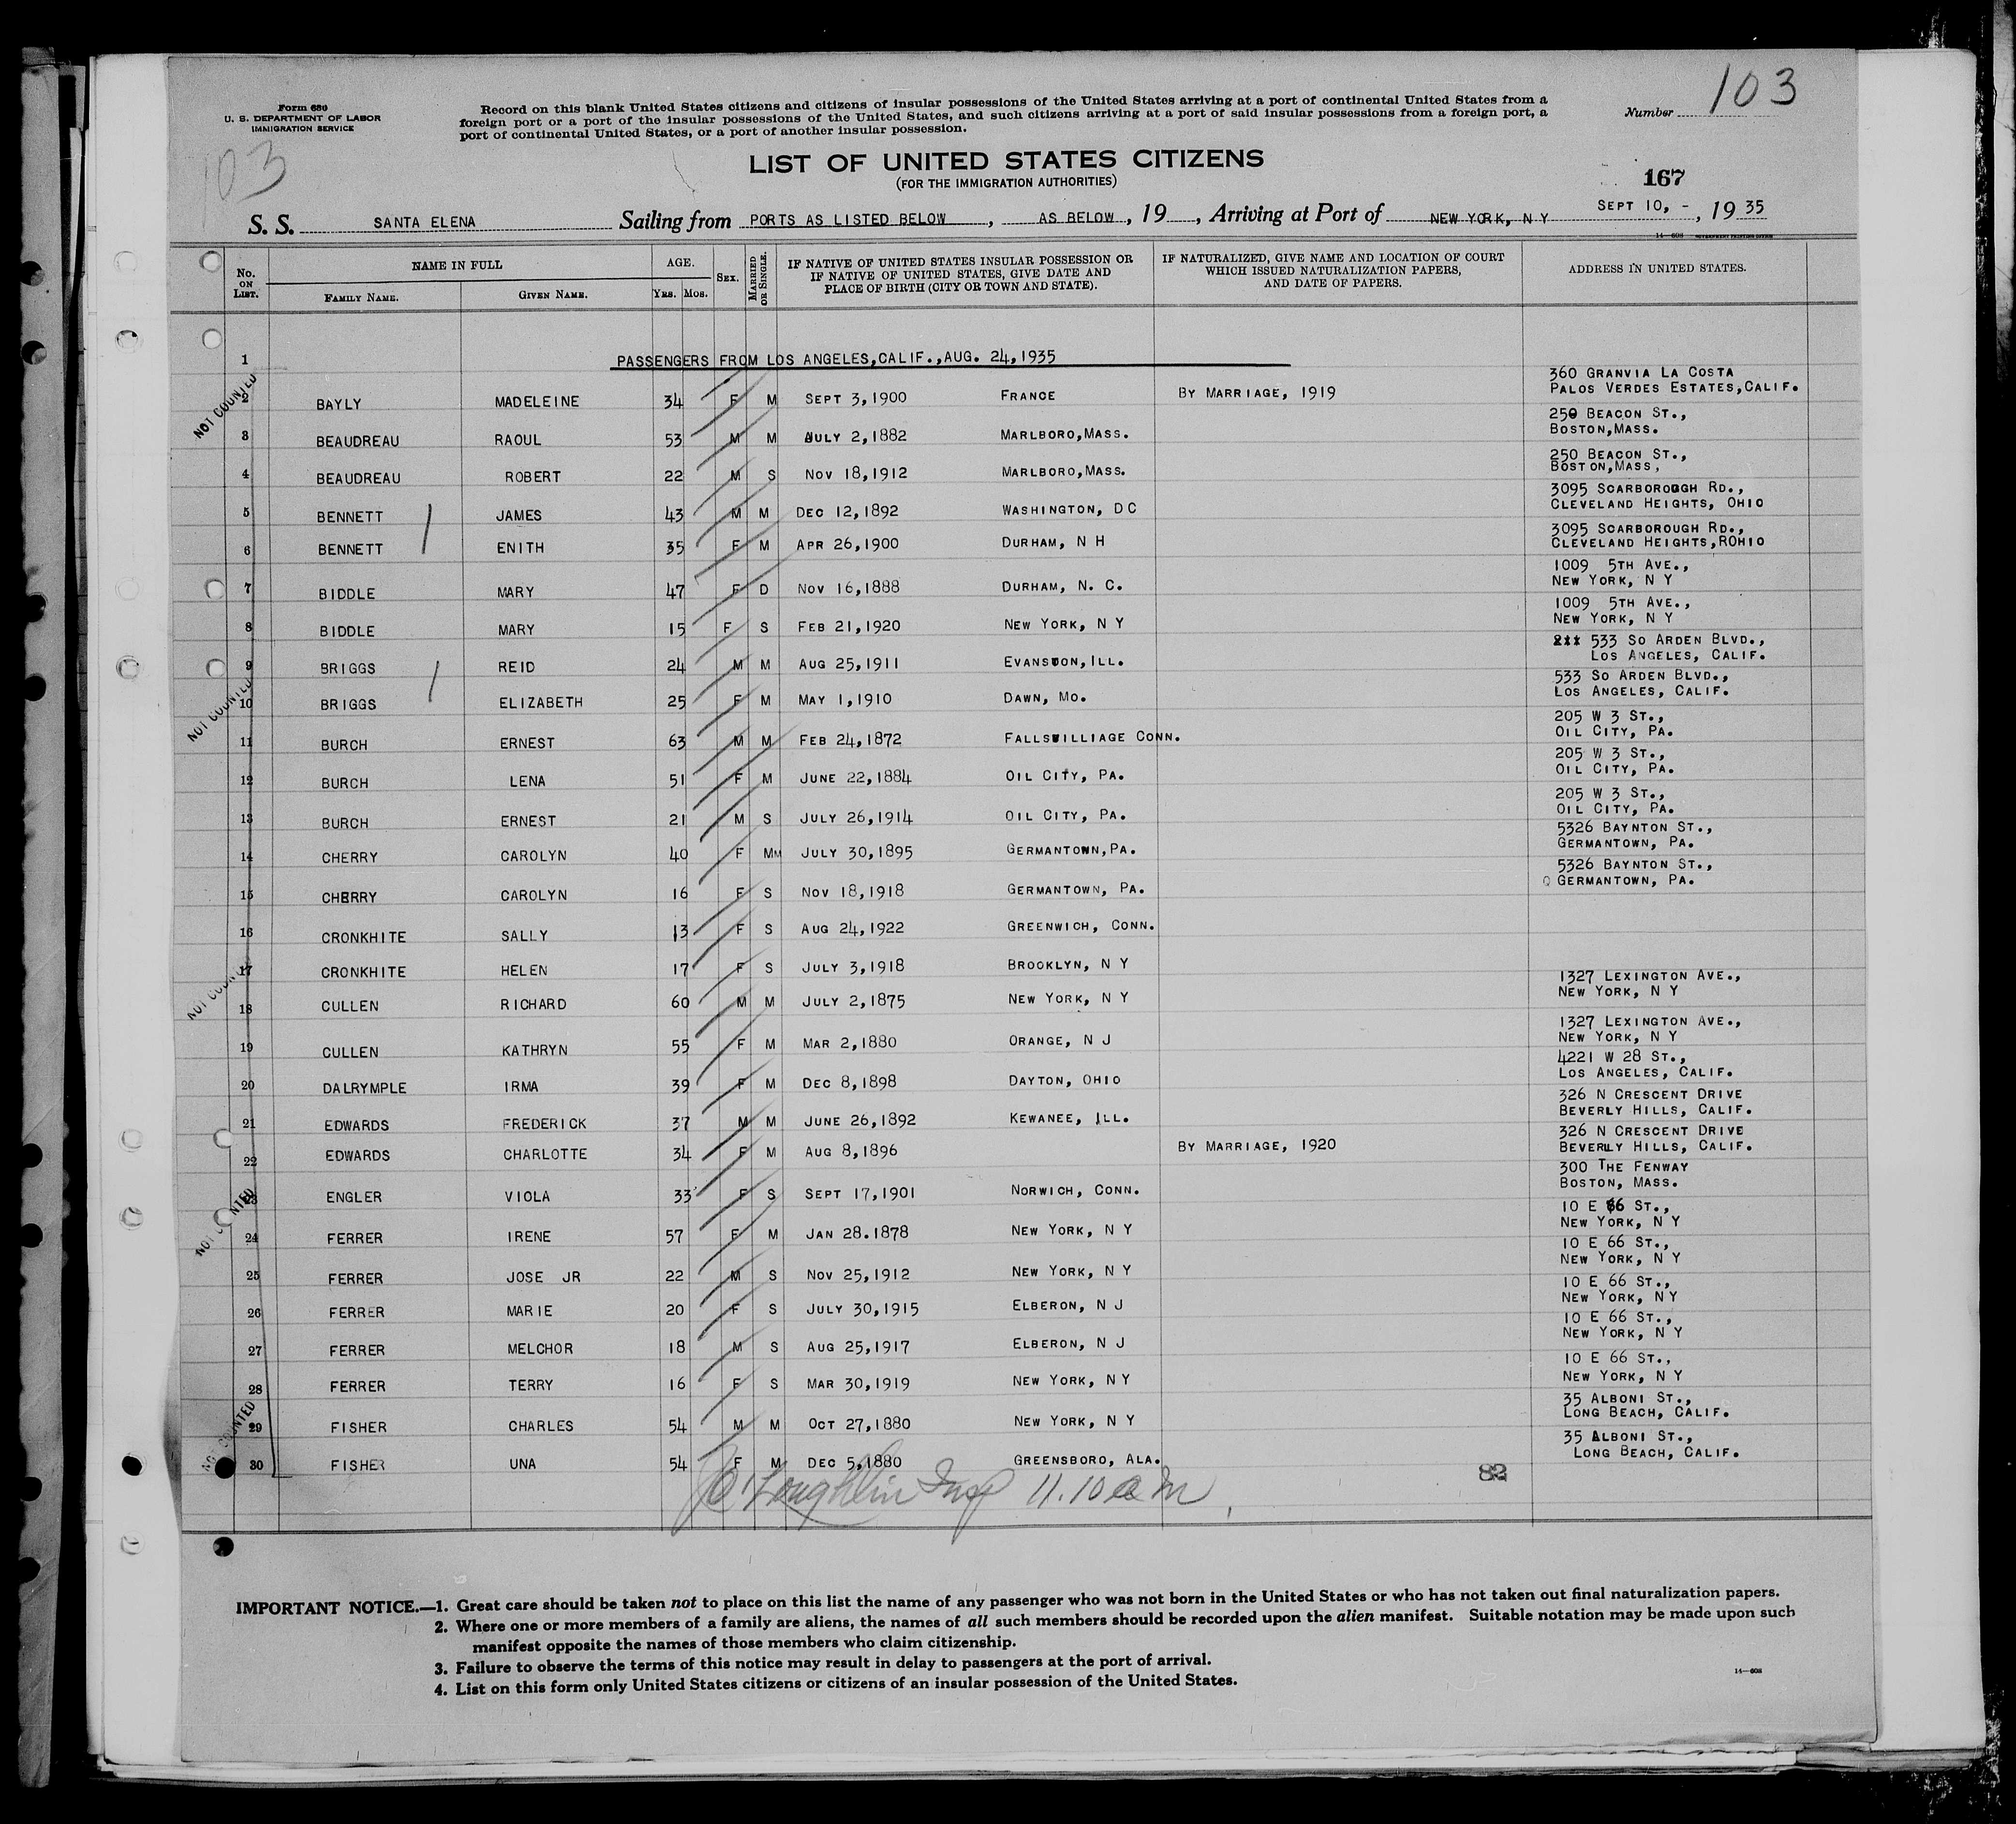 103
Form 630
U. S. DEPARTMENT OF LABOR
IMMIGRATION SERVICE
Record on this blank United States citizens and citizens of insular possessions of the United States arriving at a port of continental United States from a
foreign port or a port of the insular possessions of the United States, and such citizens arriving at a port of said insular possessions from a foreign port, a
port of continental United States, or a port of another insular possession.
Number
103
LIST OF UNITED STATES CITIZENS
(FOR THE IMMIGRATION AUTHORITIES)
167
S. S. SANTA ELENA Sailing from PORTS AS LISTED BELOW, AS BELOW, 19 , Arriving at Port of NEW YORK, N Y SEPT 10, - , 1935
14—608 GOVERNMENT PRINTING OFFICE
No. ON LIST. NAME IN FULL FAMILY NAME. GIVEN NAME. AGE. YRS. MOS. SEX. MARRIED OR SINGLE. IF NATIVE OF UNITED STATES INSULAR POSSESSION OR IF NATIVE OF UNITED STATES, GIVE DATE AND PLACE OF BIRTH (CITY OR TOWN AND STATE). IF NATURALIZED, GIVE NAME AND LOCATION OF COURT WHICH ISSUED NATURALIZATION PAPERS, AND DATE OF PAPERS. ADDRESS IN UNITED STATES.
1 PASSENGERS FROM LOS ANGELES,CALIF.,AUG. 24,1935
NOT COUNTED
2 BAYLY MADELEINE 34 F M SEPT 3,1900 FRANCE BY MARRIAGE, 1919 360 GRANVIA LA COSTA PALOS VERDES ESTATES,CALIF.
3 BEAUDREAU RAOUL 53 M M JULY 2,1882 MARLBORO,MASS. 250 BEACON ST., BOSTON,MASS.
4 BEAUDREAU ROBERT 22 M S NOV 18,1912 MARLBORO,MASS. 250 BEACON ST., BOSTON,MASS,
5 BENNETT JAMES 43 M M DEC 12,1892 WASHINGTON, D C 3095 SCARBOROGGH RD., CLEVELAND HEIGHTS, OHIO
6 BENNETT ENITH 35 F M APR 26,1900 DURHAM, N H 3095 SCARBOROUGH RD., CLEVELAND HEIGHTS,ROHIO
7 BIDDLE MARY 47 F D NOV 16,1888 DURHAM, N. C. 1009 5TH AVE., NEW YORK, N Y
8 BIDDLE MARY 15 F S FEB 21,1920 NEW YORK, N Y 1009 5TH AVE., NEW YORK, N Y
9 BRIGGS REID 24 M M AUG 25,1911 EVANSTON,ILL. 533 SO ARDEN BLVD., LOS ANGELES, CALIF.
NOT COUNTED
10 BRIGGS ELIZABETH 25 F M MAY 1,1910 DAWN, MO. 533 SO ARDEN BLVD., LOS ANGELES, CALIF.
11 BURCH ERNEST 63 M M FEB 24,1872 FALLSVILLIAGE CONN. 205 W 3 ST., OIL CITY, PA.
12 BURCH LENA 51 F M JUNE 22,1884 OIL CITY, PA. 205 W 3 ST., OIL CITY, PA.
13 BURCH ERNEST 21 M S JULY 26,1914 OIL CITY, PA. 205 W 3 ST., OIL CITY, PA.
14 CHERRY CAROLYN 40 F MM JULY 30,1895 GERMANTOWN,PA. 5326 BAYNTON ST., GERMANTOWN, PA.
15 CHERRY CAROLYN 16 F S NOV 18,1918 GERMANTOWN, PA. 5326 BAYNTON ST., GERMANTOWN, PA.
16 CRONKHITE SALLY 13 F S AUG 24,1922 GREENWICH, CONN.
17 CRONKHITE HELEN 17 F S JULY 3,1918 BROOKLYN, N Y
NOT COUNTED
18 CULLEN RICHARD 60 M M JULY 2,1875 NEW YORK, N Y 1327 LEXINGTON AVE., NEW YORK, N Y
19 CULLEN KATHRYN 55 F M MAR 2,1880 ORANGE, N J 1327 LEXINGTON AVE., NEW YORK, N Y
20 DALRYMPLE IRMA 39 F M DEC 8,1898 DAYTON, OHIO 4221 W 28 ST., LOS ANGELES, CALIF.
21 EDWARDS FREDERICK 37 M M JUNE 26,1892 KEWANEE, ILL. 326 N CRESCENT DRIVE BEVERLY HILLS, CALIF.
22 EDWARDS CHARLOTTE 34 F M AUG 8,1896 BY MARRIAGE, 1920 326 N CRESCENT DRIVE BEVERLY HILLS, CALIF.
23 ENGLER VIOLA 33 F S SEPT 17,1901 NORWICH, CONN. 300 THE FENWAY BOSTON, MASS.
NOT COUNTED
24 FERRER IRENE 57 F M JAN 28.1878 NEW YORK, N Y 10 E 66 ST., NEW YORK, N Y
25 FERRER JOSE JR 22 M S NOV 25,1912 NEW YORK, N Y 10 E 66 ST., NEW YORK, N Y
26 FERRER MARIE 20 F S JULY 30,1915 ELBERON, N J 10 E 66 ST., NEW YORK, N Y
27 FERRER MELCHOR 18 M S AUG 25,1917 ELBERON, N J 10 E 66 ST., NEW YORK, N Y
28 FERRER TERRY 16 F S MAR 30,1919 NEW YORK, N Y 10 E 66 ST., NEW YORK, N Y
29 FISHER CHARLES 54 M M OCT 27,1880 NEW YORK, N Y 35 ALBONI ST., LONG BEACH, CALIF.
NOT COUNTED
30 FISHER UNA 54 F M DEC 5,1880 GREENSBORO, ALA. 35 ALBONI ST., LONG BEACH, CALIF.
82
O'Loughlin Insp 11.10 a m
IMPORTANT NOTICE.—1. Great care should be taken not to place on this list the name of any passenger who was not born in the United States or who has not taken out final naturalization papers.
2. Where one or more members of a family are aliens, the names of all such members should be recorded upon the alien manifest. Suitable notation may be made upon such
manifest opposite the names of those members who claim citizenship.
3. Failure to observe the terms of this notice may result in delay to passengers at the port of arrival.
4. List on this form only United States citizens or citizens of an insular possession of the United States.
14—608